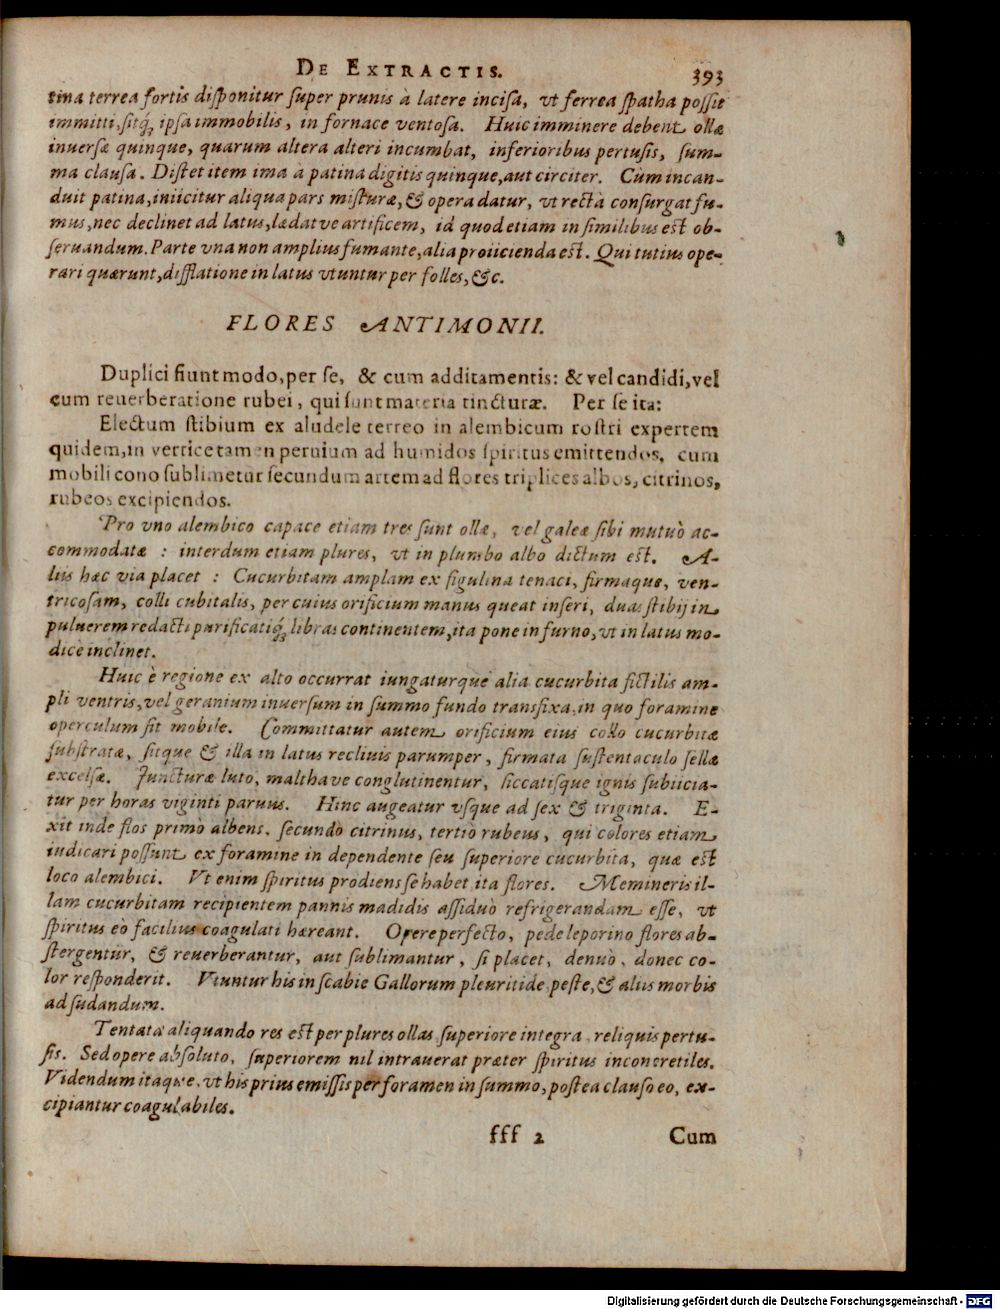 DE EXTRACTIS. 393
tina terrea fortis disponitur super prunis à latere incisa, vt ferrea spatha possit
immitti, sitq́; ipsa immobilis, in fornace ventosa. Huic imminere debent ollæ
inuersæ quinque, quarum altera alteri incumbat, inferioribus pertusis, sum-
ma clausa. Distet item ima à patina digitis quinque, aut circiter. Cùm incan-
duit patina, iniicitur aliqua pars misturæ, & opera datur, vt rectà consurgat fu-
mus, nec declinet ad latus, lædatve artificem, id quod etiam in similibus est ob-
seruandum. Parte vna non amplius fumante, alia proiicienda est. Qui tutius ope-
rari quærunt, difflatione in latus vtuntur per folles, &c.
FLORES ANTIMONII.
Duplici fiunt modo, per se, & cum additamentis: & vel candidi, vel
cum reuerberatione rubei, qui sunt materia tincturæ. Per se ita:
Electum stibium ex aludele terreo in alembicum rostri expertem
quidem, in vertice tamen peruium ad humidos spiritus emittendos, cum
mobili cono sublimetur secundum artem ad flores triplices albos, citrinos,
rubeos excipiendos.
Pro vno alembico capace etiam tres sunt ollæ, vel galeæ sibi mutuò ac-
commodatæ : interdum etiam plures, vt in plumbo albo dictum est. A-
liis hæc via placet : Cucurbitam amplam ex figulina tenaci, firmaque, ven-
tricosam, colli cubitalis, per cuius orificium manus queat inseri, duas stibij in
puluerem redacti purificatiq́; libras continentem, ita pone in furno, vt in latus mo-
dicè inclinet.
Huic è regione ex alto occurrat iungaturque alia cucurbita fictilis am-
pli ventris, vel geranium inuersum in summo fundo transfixa, in quo foramine
operculum sit mobile. Committatur autem orificium eius collo cucurbitæ
substratæ, sitque & illa in latus recliuis parumper, firmata sustentaculo sellæ
excelsæ. Juncturæ luto, malthave conglutinentur, siccatisque ignis subiicia-
tur per horas viginti paruus. Hinc augeatur vsque ad sex & triginta. E-
xit inde flos primò albens, secundò citrinus, tertiò rubeus, qui colores etiam
iudicari possunt ex foramine in dependente seu superiore cucurbita, quæ est
loco alembici. Vt enim spiritus prodiens se habet ita flores. Memineris il-
lam cucurbitam recipientem pannis madidis assiduò refrigerandam esse, vt
spiritus eò facilius coagulati hæreant. Opere perfecto, pede leporino flores ab-
stergentur, & reuerberantur, aut sublimantur, si placet, denuò, donec co-
lor responderit. Vtuntur his in scabie Gallorum pleuritide, peste, & aliis morbis
ad sudandum.
Tentata aliquando res est per plures ollas, superiore integra, reliquis pertu-
sis. Sed opere absoluto, superiorem nil intrauerat præter spiritus inconcretiles.
Videndum itaque, vt his prius emissis per foramen in summo, postea clauso eo, ex-
cipiantur coagulabiles.
fff 2 Cum
Digitalisierung gefördert durch die Deutsche Forschungsgemeinschaft - DFG